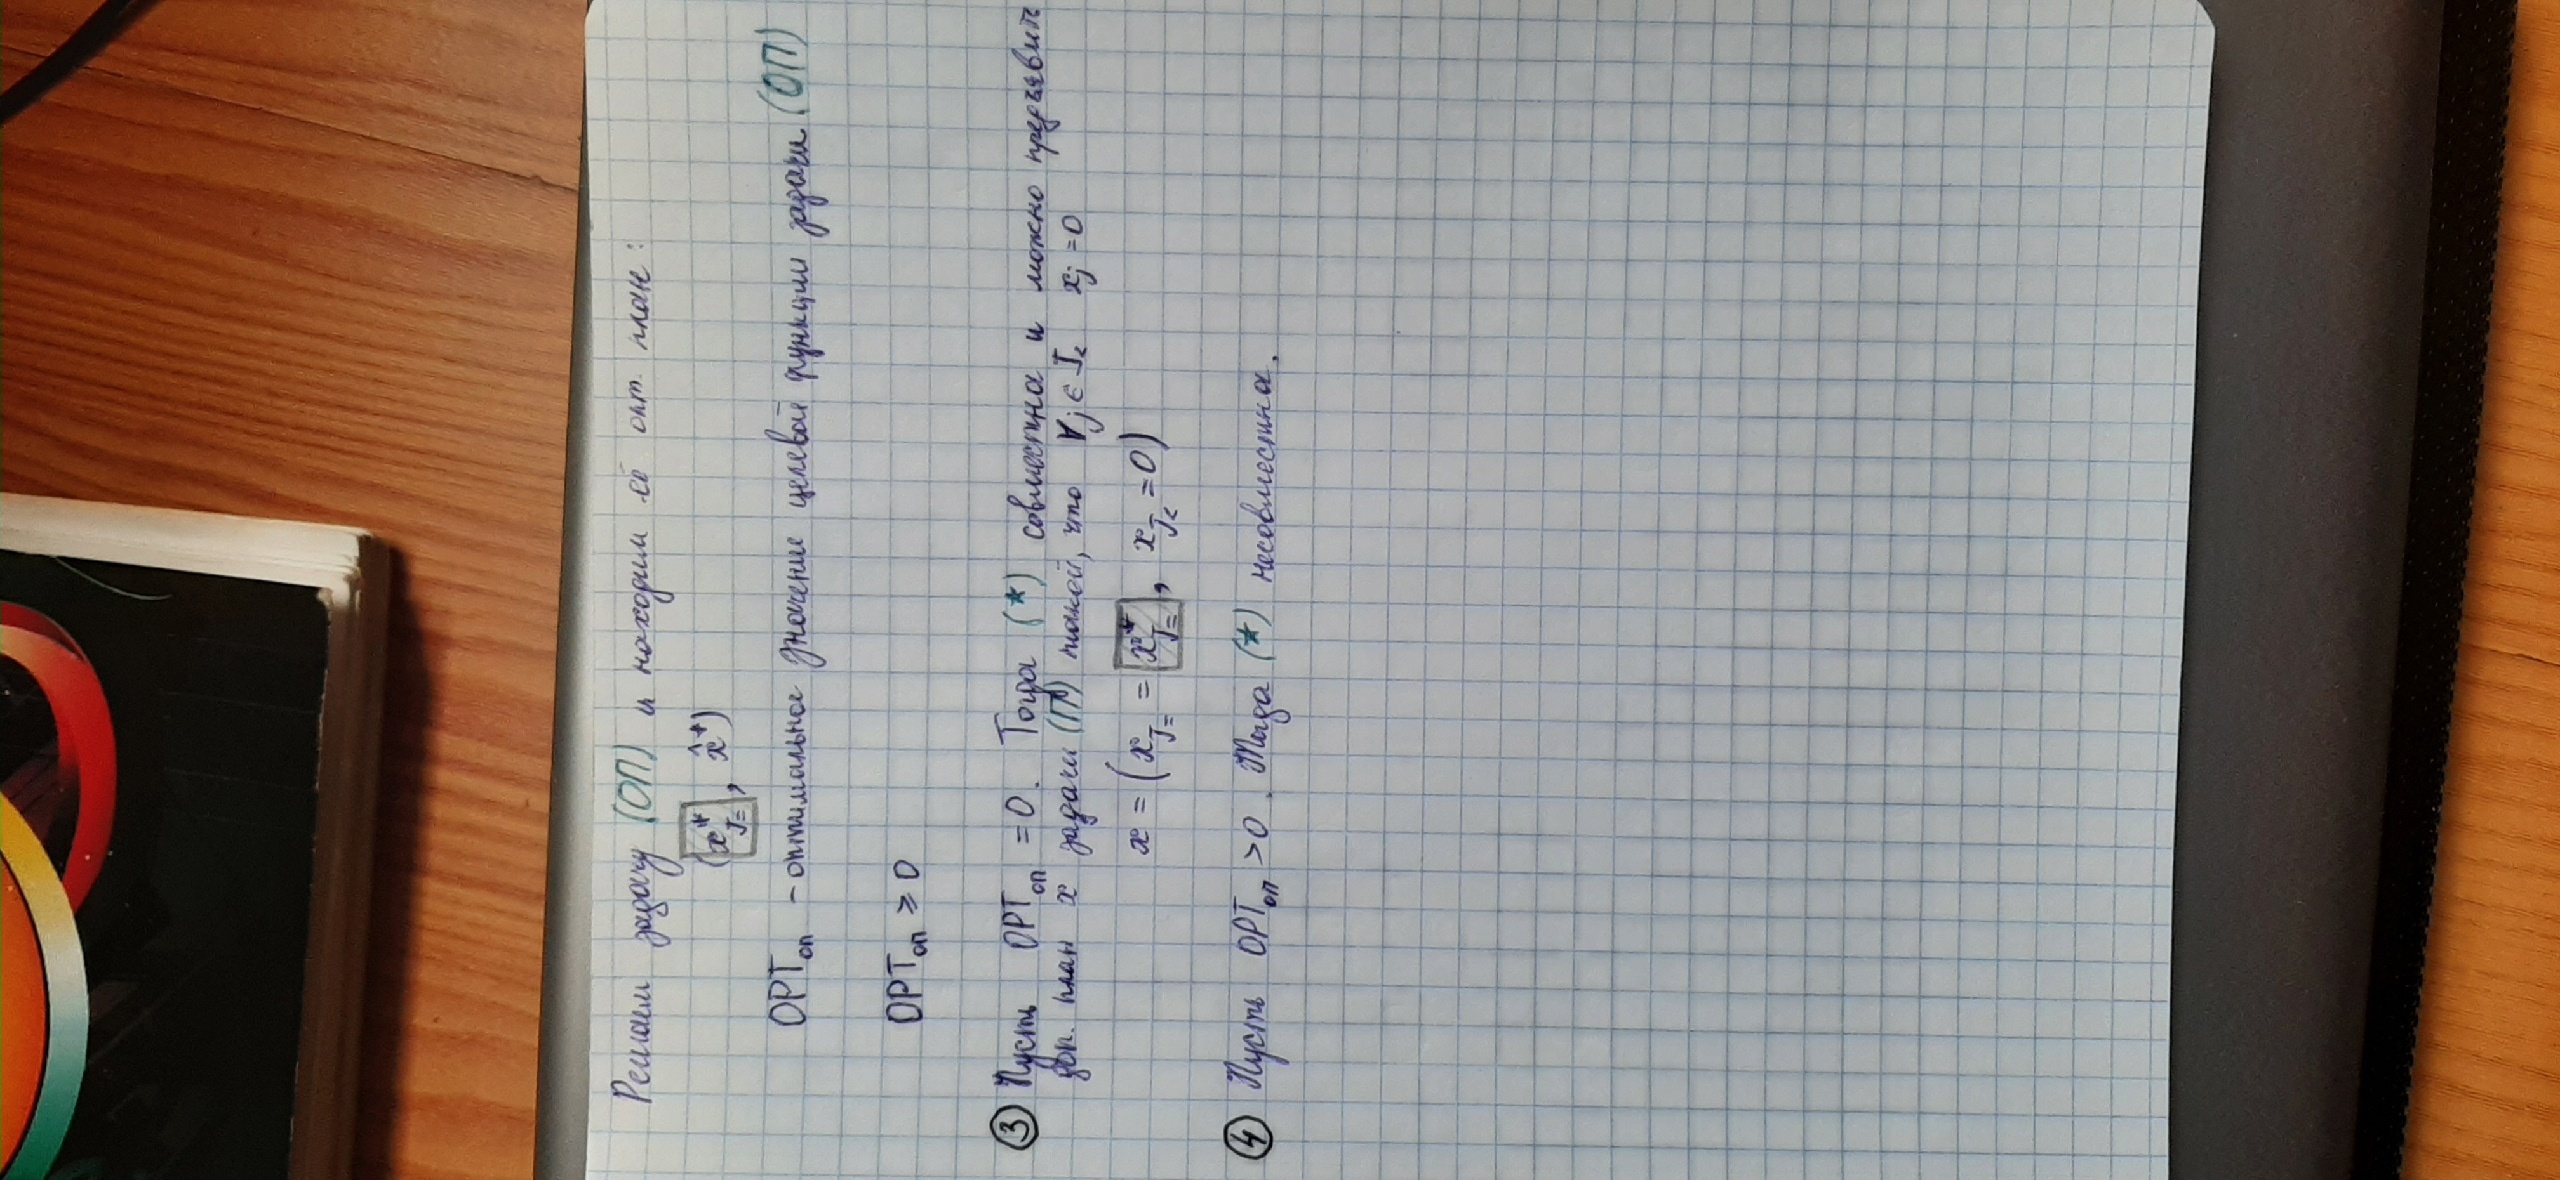 Решаем задачу (ОП) и находим её опт. план:
(x*_J=, x̂*)
OPT_оп – оптимальное значение целевой функции задачи (ОП)
OPT_оп ⩾ 0
③ Пусть OPT_оп = 0. Тогда (*) совместна и можно предъявить
доп. план x задачи (П) такой, что ∀j ∈ J_< x_j = 0
x = (x_J= = x*_J=, x_J< = 0)
④ Пусть OPT_оп > 0. Тогда (*) несовместна.